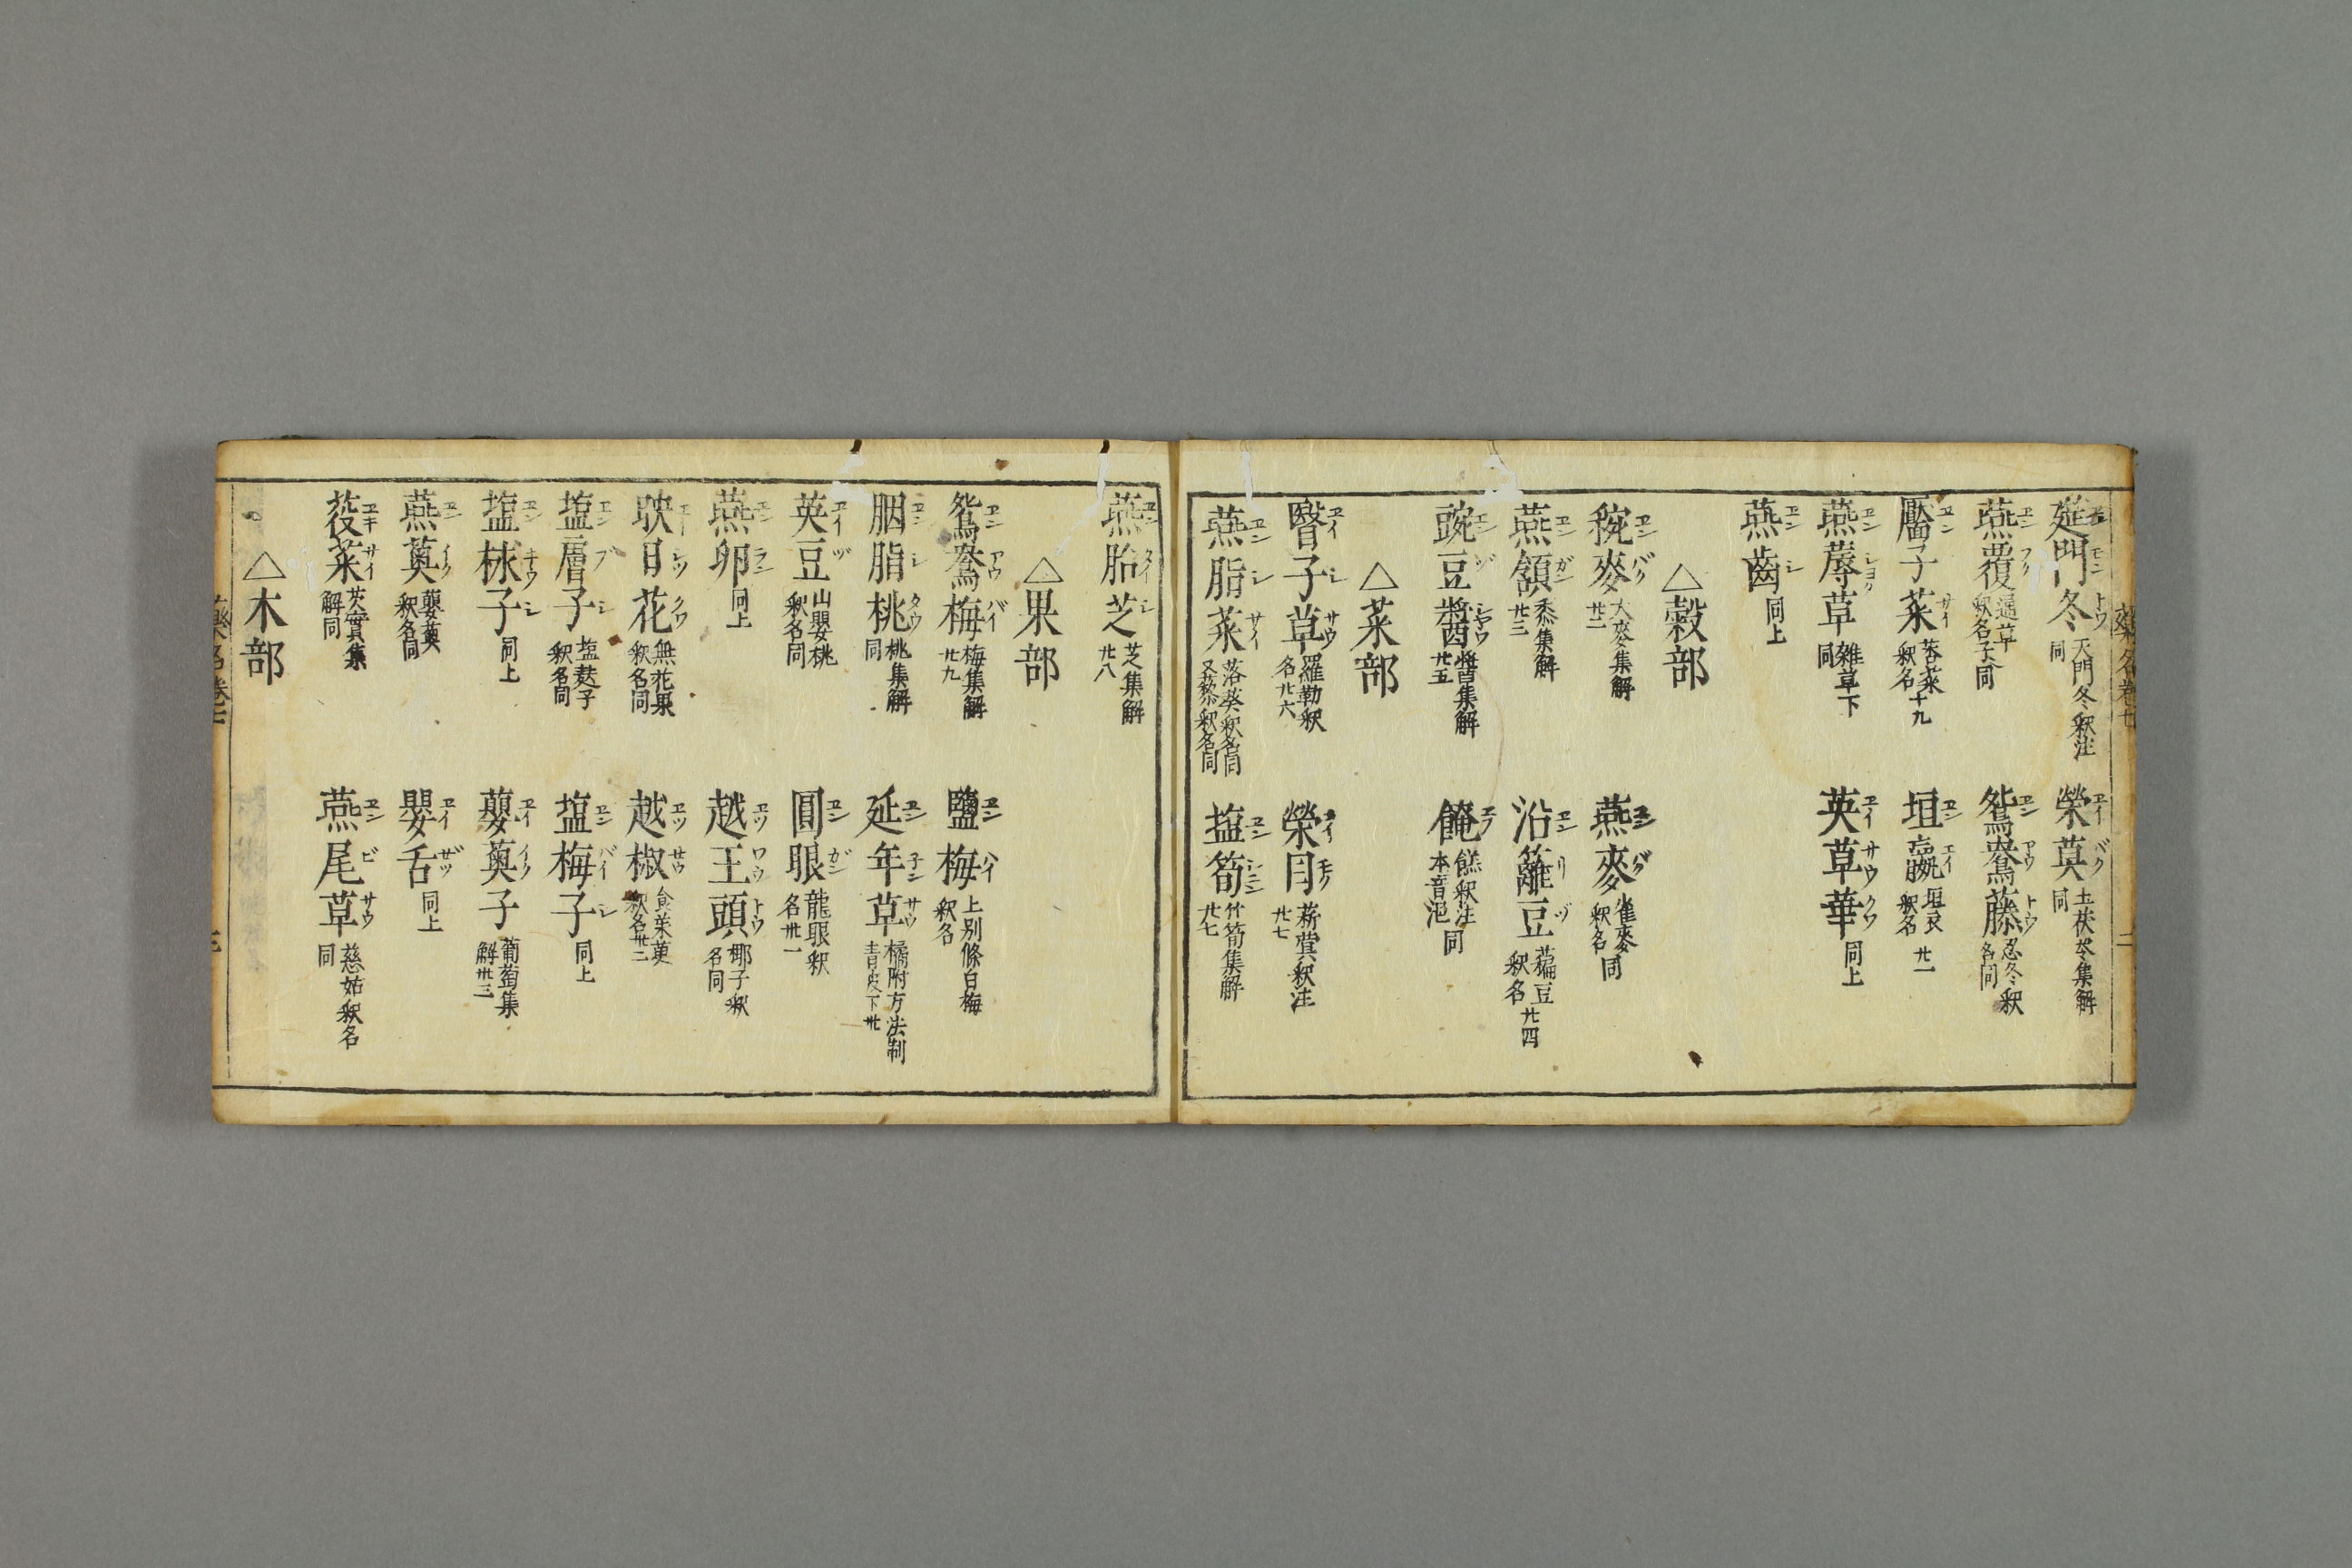 延門冬 天門冬釈注同 榮莫 土茯苓集解同
燕覆 通草釈名子同 鴛鴦藤 忍冬釈名同
靨子菜 莕菜釈名十九 垣嬴 垣衣釈名廿一
燕蓐草 雑草下同 英草華 同上
燕齒 同上
△穀部
䅌麥 大麥集解廿二 燕麥 雀麥釈名同
燕頷 黍集解廿三 沿籬豆 藊豆釈名廿四
豌豆醬 醬集解廿五 餣 餻釈注同本音浥
△菜部
翳子草 羅勒釈名廿六 榮目 菥蓂釈注廿七
燕脂菜 落葵釈名同又藜釈名同 塩筍 竹筍集解廿七
燕胎芝 芝集解廿八
△果部
鴛鴦梅 梅集解廿九 鹽梅 上別條白梅釈名
胭脂桃 桃集解同 延年草 橘附方法制青皮下卅
英豆 山嬰桃釈名同 圓眼 龍眼釈名卅一
燕卵 同上 越王頭 椰子釈名同
映日花 無花果釈名同 越椒 食茱萸釈名卅二
塩膚子 塩麩子釈名同 塩梅子 同上
塩梂子 同上 蘡薁子 葡萄集解卅三
燕薁 蘡薁釈名同 嬰舌 同上
芰菜 芡實集解同 燕尾草 慈姑釈名同
△木部
藥名卷七